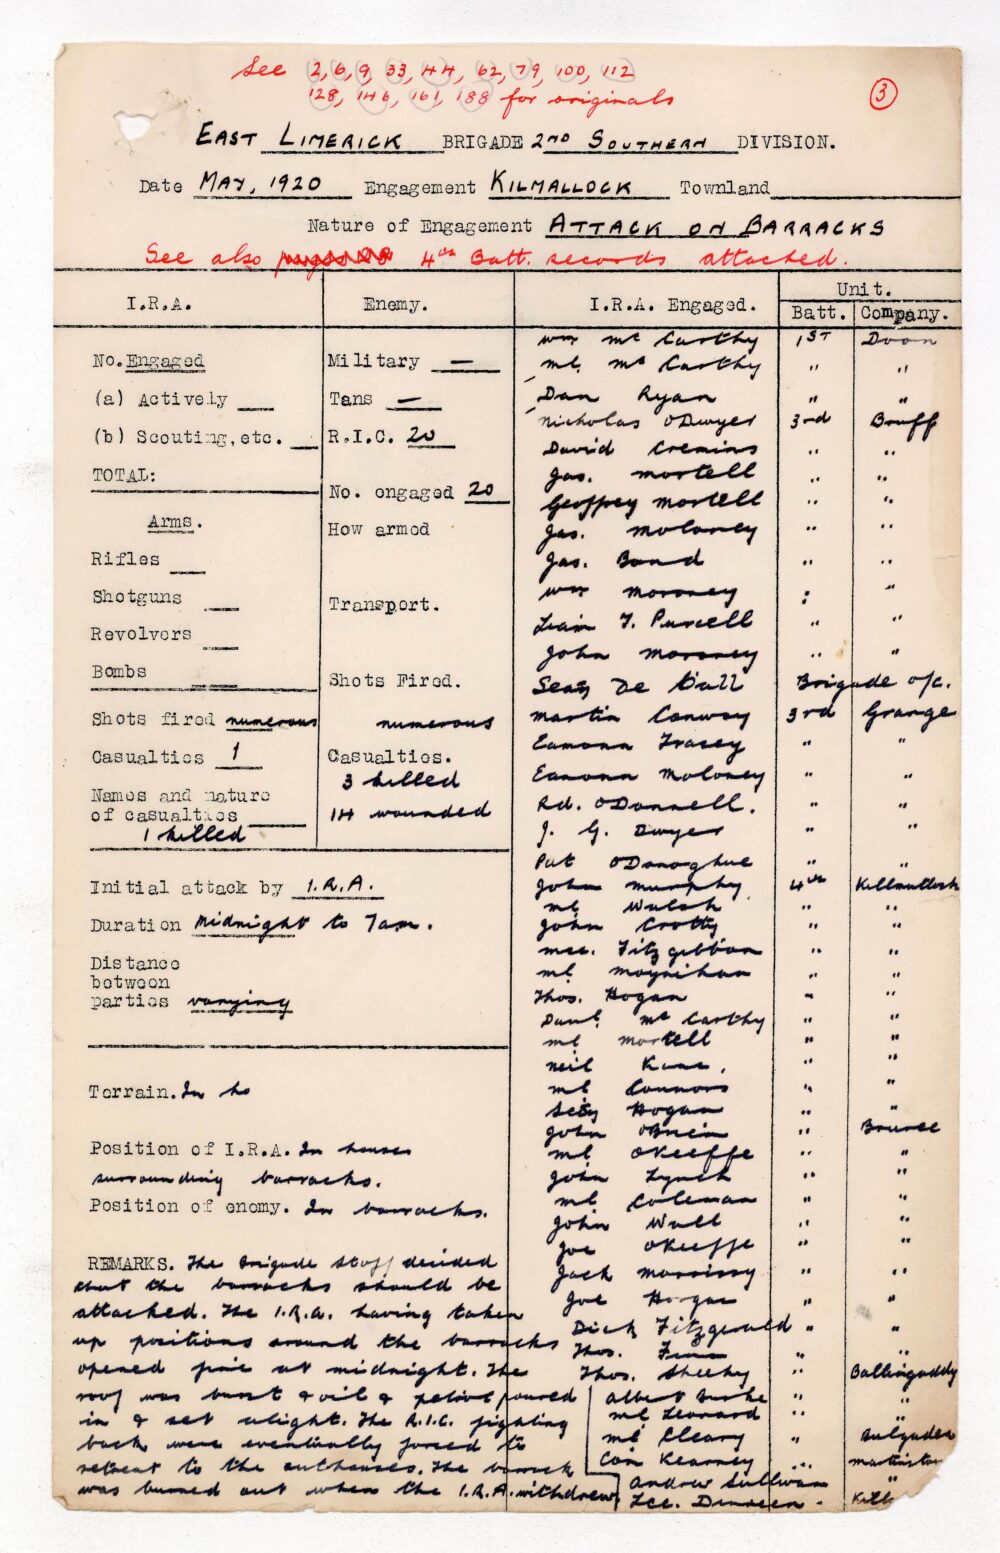 See 2, 6, 9, 33, 44, 62, 79, 100, 112
128, 146, 161, 188 for originals
3
EAST LIMERICK BRIGADE 2ND SOUTHERN DIVISION.
Date MAY, 1920 Engagement KILMALLOCK Townland
Nature of Engagement ATTACK ON BARRACKS
See also 4th Batt. records attached.
I.R.A.
No. Engaged
(a) Actively
(b) Scouting, etc.
TOTAL:
Arms.
Rifles
Shotguns
Revolvers
Bombs
Shots fired numerous
Casualties 1
Names and nature
of casualties
1 killed
Enemy.
Military —
Tans —
R.I.C. 20
No. engaged 20
How armed
Transport.
Shots Fired.
numerous
Casualties.
3 killed
14 wounded
Initial attack by I.R.A.
Duration Midnight to 7am.
Distance
between
parties varying
Terrain. In ho
Position of I.R.A. In houses
surrounding barracks.
Position of enemy. In barracks.
REMARKS. The Brigade Staff decided
that the barracks should be
attacked. The I.R.A. having taken
up positions around the barracks
opened fire at midnight. The
roof was burst & oil & petrol poured
in & set alight. The R.I.C. fighting
back were eventually forced to
retreat to the outhouses. The barrack
was burned out when the I.R.A. withdrew
I.R.A. Engaged. Unit.
Batt. Company.
Wm Mc Carthy 1ST Doon
Ml. Mc Carthy " "
Dan Ryan " "
Nicholas O'Dwyer 3rd Bruff
David Cremins " "
Jas. Mortell " "
Geoffrey Mortell " "
Jas. Moloney " "
Jas. Bond " "
Wm Moroney : "
Liam T. Purcell " "
John Moroney " "
Sean De Wall Brigade o/c.
Martin Conway 3rd Grange
Eamonn Tracey " "
Eamonn Moloney " "
Rd. O'Donnell. " "
J. G. Dwyer " "
Pat O'Donoghue " "
John Murphy 4th Killmallock
Ml Walsh " "
John Crotty " "
Mce. Fitzgibbon " "
Ml Moynihan " "
Thos. Hogan " "
Danl. Mc Carthy " "
Ml Mortell " "
Neil Kane. " "
Ml Connors " "
Hogan " "
John O'Brien " Bruree
Ml O'Keeffe " "
John Lynch " "
Ml Coleman " "
John Wall " "
Joe O'Keeffe " "
Jack Morrissy " "
Joe Horgan " "
Dick Fitzgerald " "
Thos. " "
Thos. Sheehy " Ballingaddy
Albert Burke " "
Ml Leonard " "
Ml Cleary " Bulgaden
Con Kearney " Martinstow
Andrew Sullivan "
Dinneen. Kill